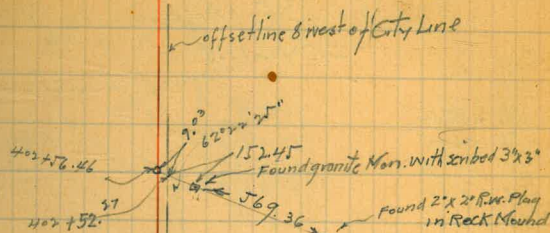 offset line 8' west of City Line
9.03
62°22'25"
402+56.46
152.45
Found granite Mon. with scribed 3"x3"
569.36
402+52.27
Found 2"x2" R.W. Plug
in Rock Mound